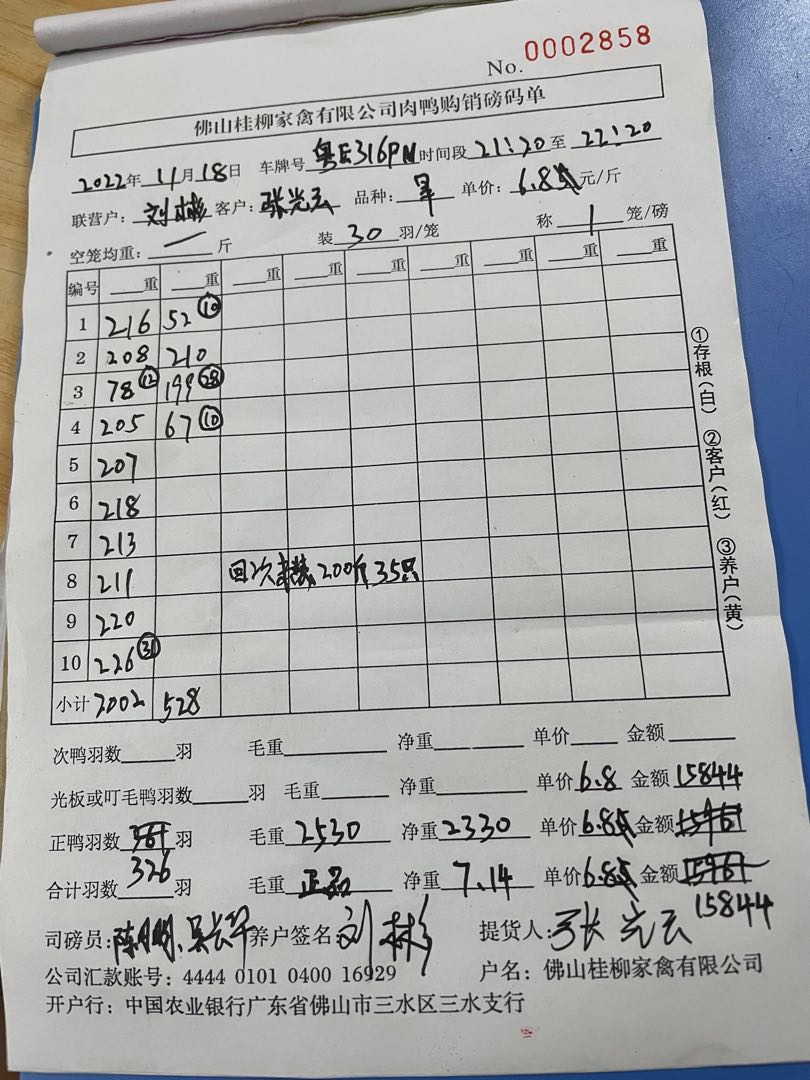 No. 0002858
佛山桂柳家禽有限公司肉鸭购销磅码单
2022年11月18日 车牌号 粤E316PN 时间段 21:20 至 22:20
联营户: 刘彬 客户: 张光云 品种: 单价: 6.8 元/斤
空笼均重: 一 斤 装 30 羽/笼 称 1 笼/磅
编号 重 重 重 重 重 重 重 重 重
1 216 52 ⑩
2 208 210
3 78 ⑫ 199 ㉘
4 205 67 ⑩
5 207
6 218
7 213
8 211 回次 200斤 35只
9 220
10 226 ㉛
小计 2002 528
次鸭羽数 羽 毛重 净重 单价 金额
光板或叮毛鸭羽数 羽 毛重 净重 单价 6.8 金额 15844
正鸭羽数 361 羽 毛重 2530 净重 2330 单价 6.8 金额 15961
合计羽数 326 羽 毛重 正品 净重 7.14 单价 6.8 金额 15961
15844
司磅员: 养户签名: 刘彬 提货人: 张光云
公司汇款账号: 4444 0101 0400 16929 户名: 佛山桂柳家禽有限公司
开户行: 中国农业银行广东省佛山市三水区三水支行
①存根(白) ②客户(红) ③养户(黄)